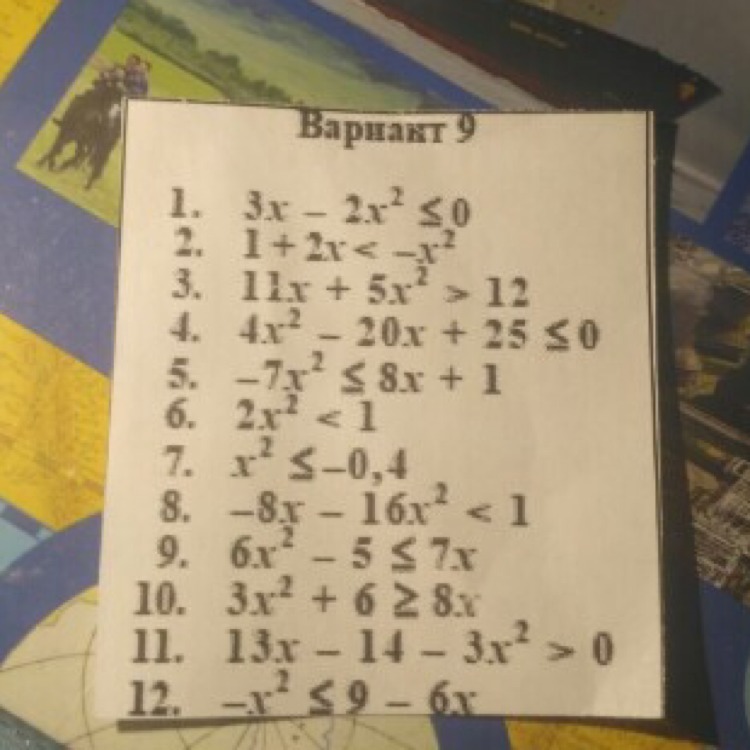 Вариант 9
1. 3x – 2x² ≤ 0
2. 1 + 2x < –x²
3. 11x + 5x² > 12
4. 4x² – 20x + 25 ≤ 0
5. –7x² ≤ 8x + 1
6. 2x² < 1
7. x² ≤ –0,4
8. –8x – 16x² < 1
9. 6x² – 5 ≤ 7x
10. 3x² + 6 ≥ 8x
11. 13x – 14 – 3x² > 0
12. –x² ≤ 9 – 6x